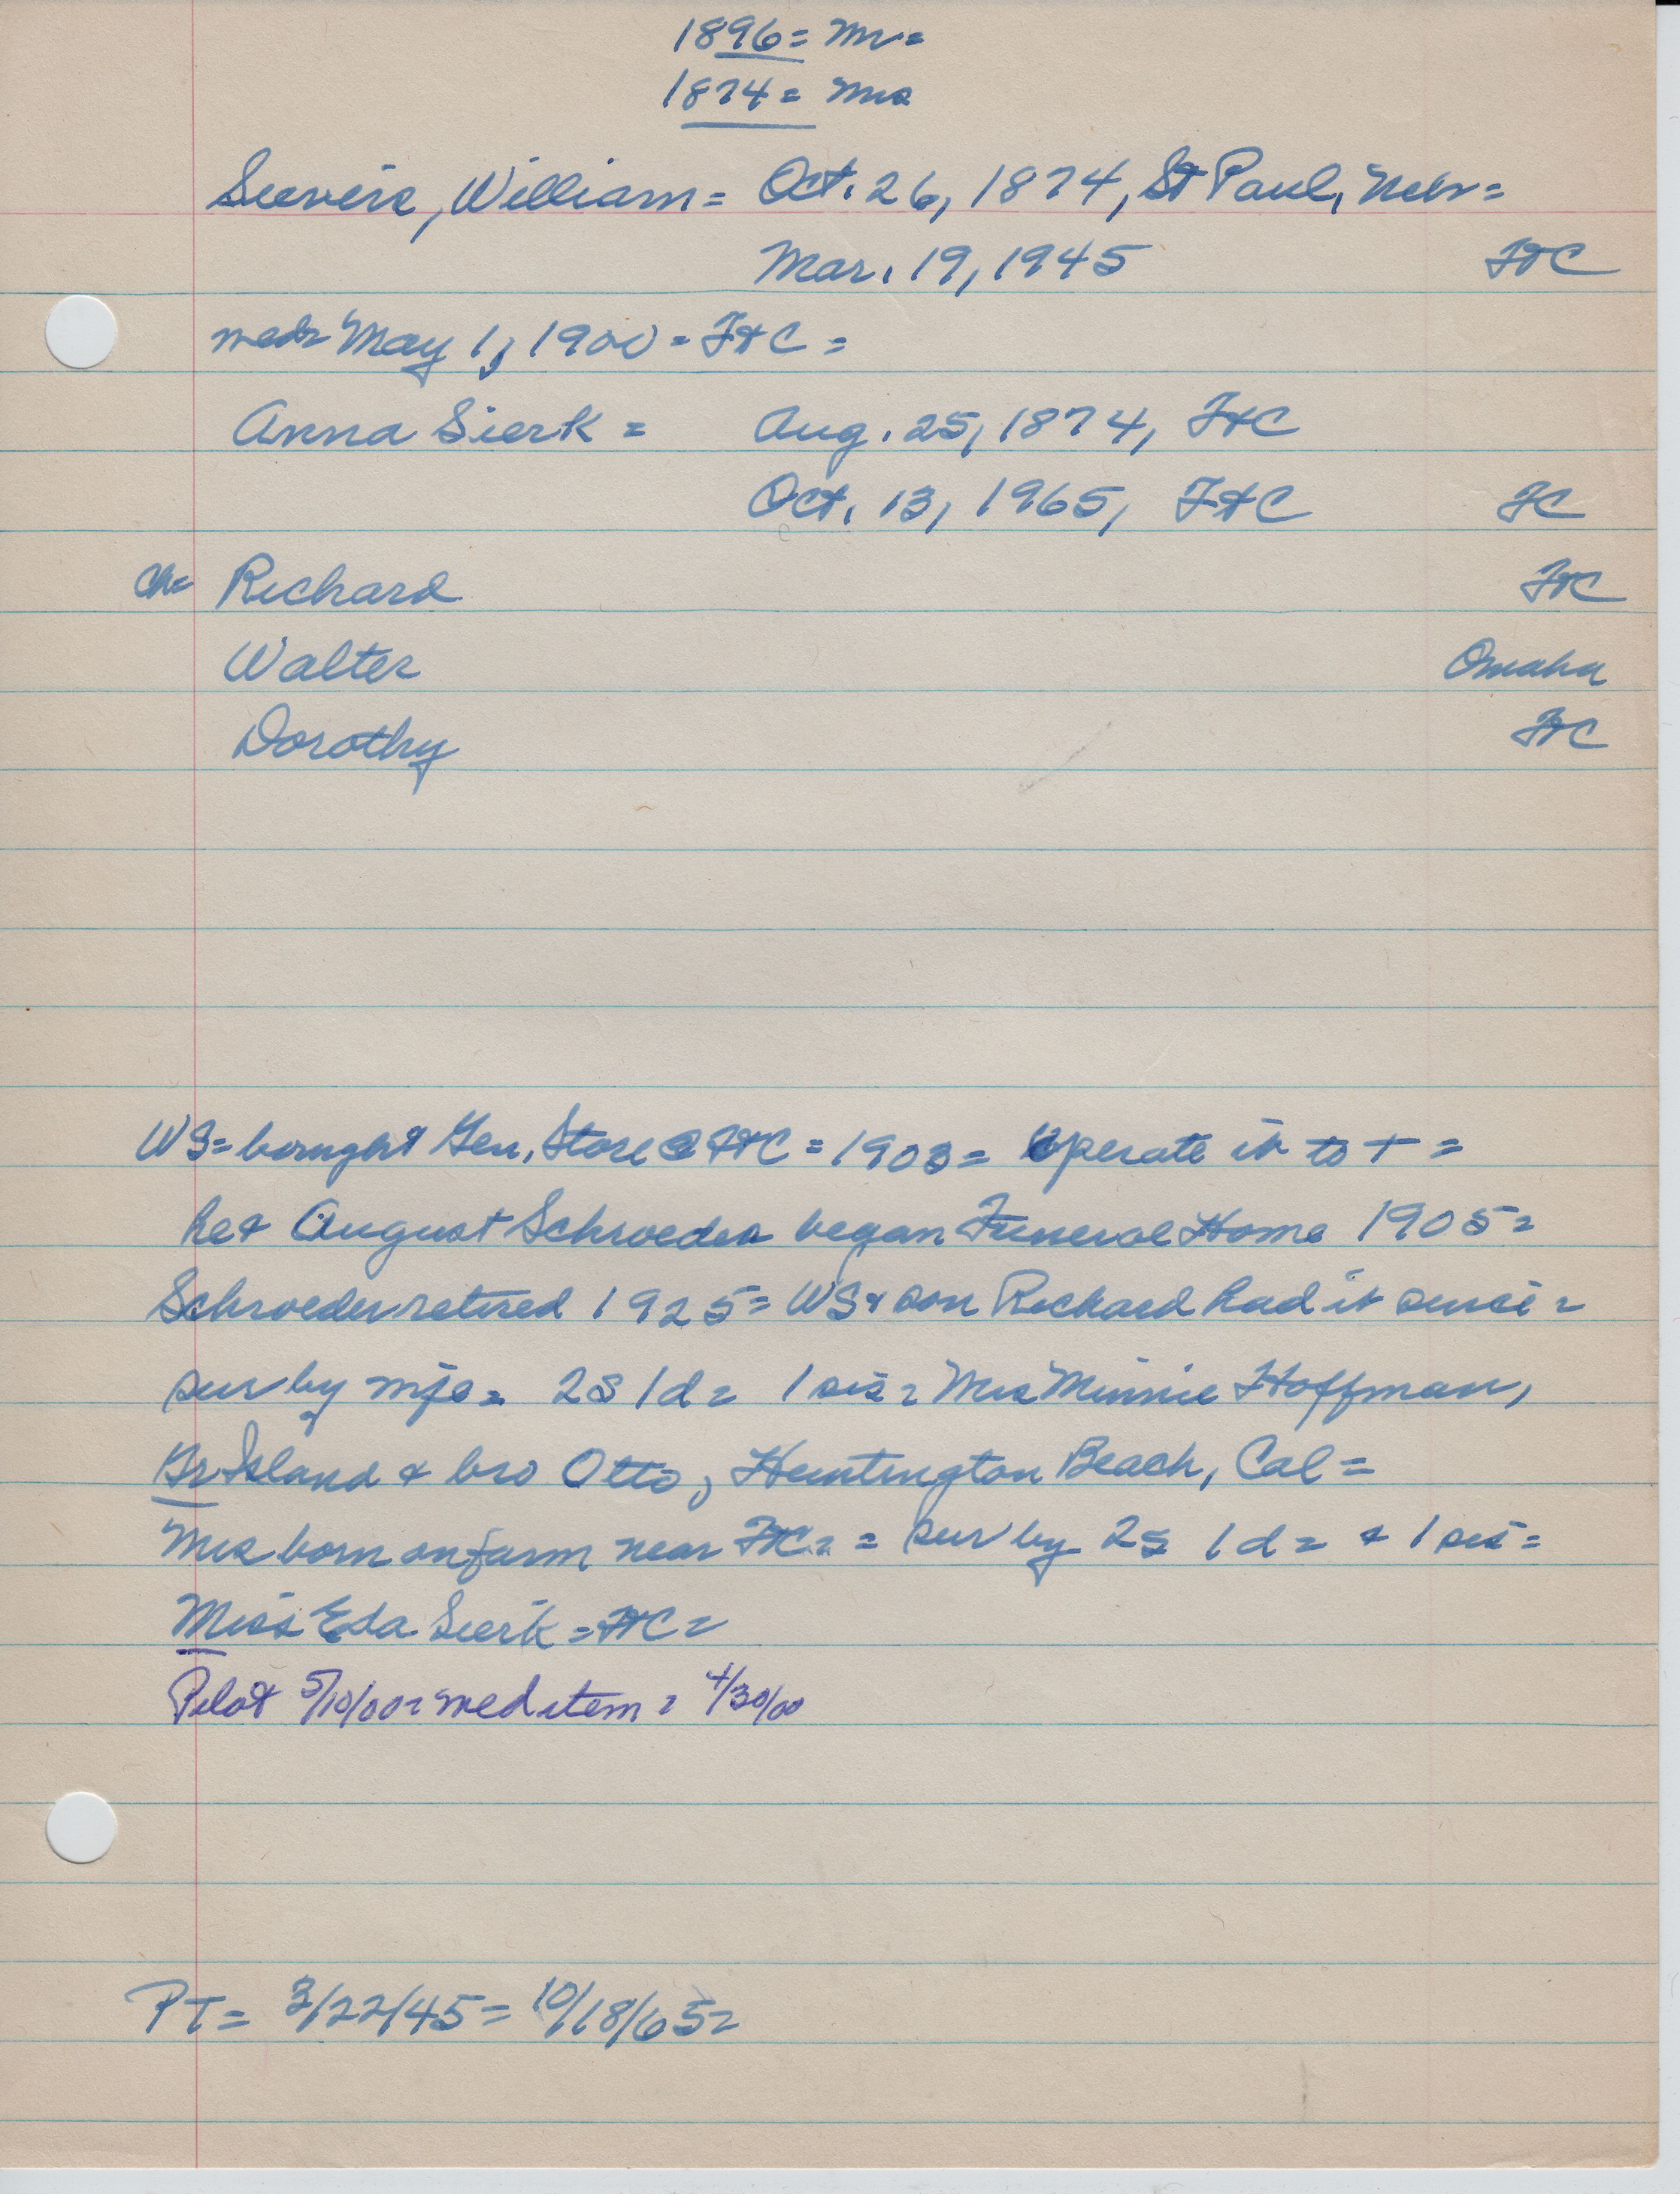 1896 = Mr =
1874 = Mrs
Sievers, William = Oct. 26, 1874, St Paul, Nebr =
Mar. 19, 1945 FtC
wed = May 1, 1900 = FtC =
Anna Sierk = Aug. 25, 1874, FtC
Oct. 13, 1965, FtC FC
Ch = Richard FtC
Walter Omaha
Dorothy FtC
WS = bought Gen. Store @ FtC = 1903 = Operate it to + =
he & August Schroeder began Funeral Home 1905 =
Schroeder retired 1925 = WS & son Richard had it since =
sur by wife = 2S 1d = 1 sis = Mrs Minnie Hoffman,
Gr Island & bro Otto, Huntington Beach, Cal =
Mrs born on farm near FtC = = sur by 2s 1d = & 1 sis =
Miss Eda Sierk = FtC =
Pilot 5/10/00 = wed item = 4/30/00
PT = 3/22/45 = 10/18/65 =